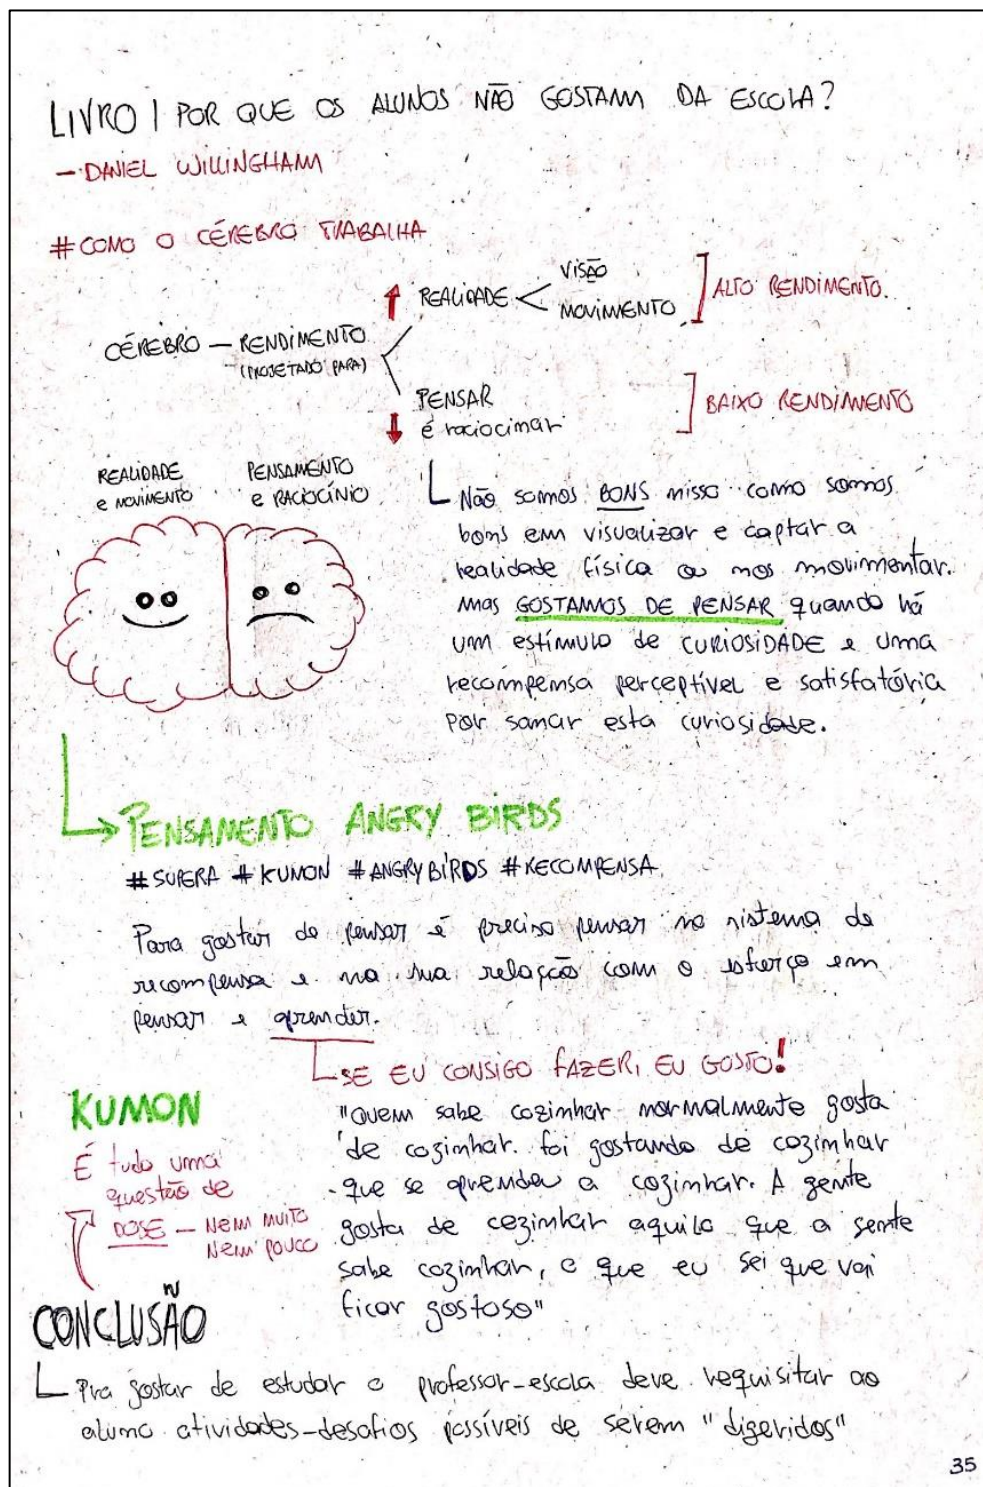 LIVRO | POR QUE OS ALUNOS NÃO GOSTAM DA ESCOLA?
- DANIEL WILLINGHAM
# COMO O CÉREBRO TRABALHA
CÉREBRO — RENDIMENTO
(PROJETADO PARA)
REALIDADE <
VISÃO
MOVIMENTO
ALTO RENDIMENTO.
PENSAR
é raciocinar
BAIXO RENDIMENTO
REALIDADE
e MOVIMENTO
PENSAMENTO
e RACIOCÍNIO
Não somos BONS nisso como somos
bons em visualizar e captar a
realidade física ou nos movimentar.
Mas GOSTAMOS DE PENSAR quando há
um estímulo de CURIOSIDADE e uma
recompensa perceptível e satisfatória
por sanar esta curiosidade.
→ PENSAMENTO ANGRY BIRDS
# SUPERA # KUMON # ANGRY BIRDS # RECOMPENSA
Para gostar de pensar é preciso pensar no sistema de
recompensa e na sua relação com o esforço em
pensar e aprender.
SE EU CONSIGO FAZER, EU GOSTO!
KUMON
É tudo uma
questão de
DOSE — Nem muito
Nem pouco
"Quem sabe cozinhar normalmente gosta
de cozinhar. foi gostando de cozinhar
que se aprendeu a cozinhar. A gente
gosta de cozinhar aquilo que a gente
sabe cozinhar, o que eu sei que vai
ficar gostoso"
CONCLUSÃO
Pra gostar de estudar o professor-escola deve requisitar ao
aluno atividades-desafios possíveis de serem "digeridos"
35